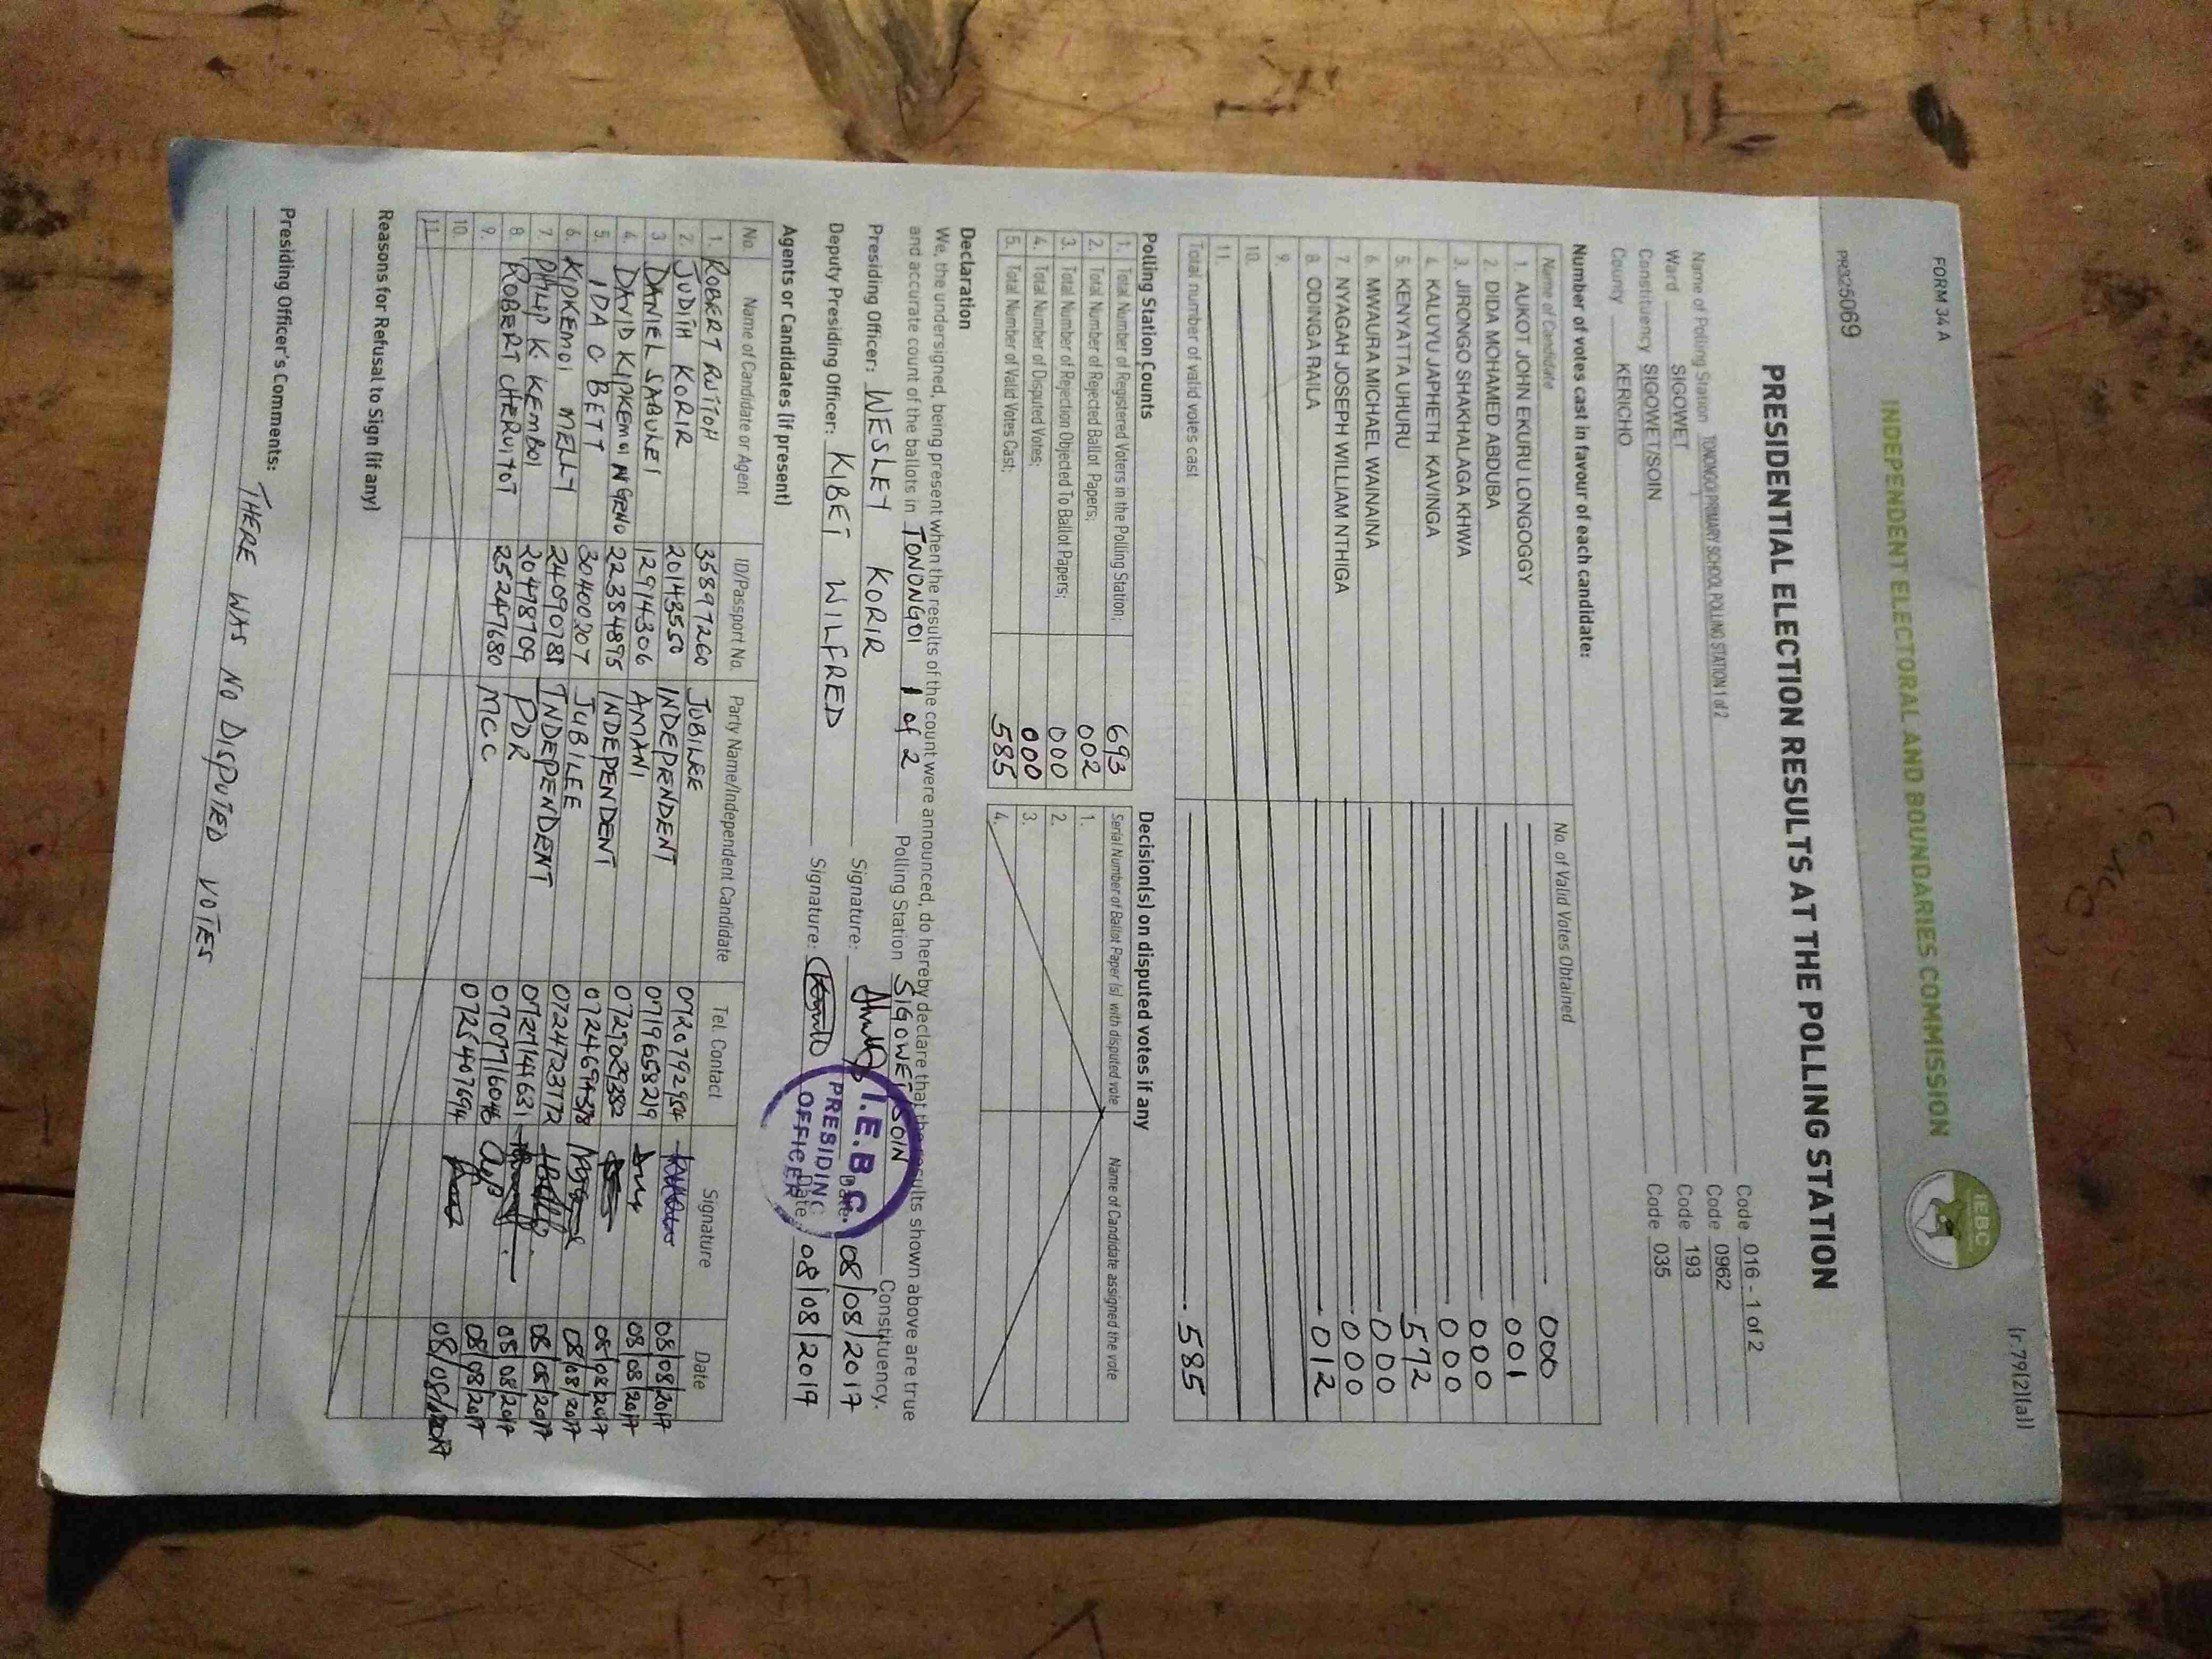 FORM 34 A
(r.79(2)(a))
INDEPENDENT ELECTORAL AND BOUNDARIES COMMISSION
IEBC
PR325069
PRESIDENTIAL ELECTION RESULTS AT THE POLLING STATION
Name of Polling Station TONONGOI PRIMARY SCHOOL POLLING STATION 1 of 2 Code 016 - 1 of 2
Ward SIGOWET Code 0962
Constituency SIGOWET/SOIN Code 193
County KERICHO Code 035
Number of votes cast in favour of each candidate:
Name of Candidate No. of Valid Votes Obtained
1. AUKOT JOHN EKURU LONGOGGY 000
2. DIDA MOHAMED ABDUBA 001
3. JIRONGO SHAKHALAGA KHWA 000
4. KALUYU JAPHETH KAVINGA 000
5. KENYATTA UHURU 572
6. MWAURA MICHAEL WAINAINA 000
7. NYAGAH JOSEPH WILLIAM NTHIGA 000
8. ODINGA RAILA 012
9.
10.
11.
Total number of valid votes cast 585
Polling Station Counts
1. Total Number of Registered Voters in the Polling Station; 693
2. Total Number of Rejected Ballot Papers; 002
3. Total Number of Rejection Objected To Ballot Papers; 000
4. Total Number of Disputed Votes; 000
5. Total Number of Valid Votes Cast; 585
Decision(s) on disputed votes if any
Serial Number of Ballot Paper (s) with disputed vote Name of Candidate assigned the vote
1.
2.
3.
4.
Declaration
We, the undersigned, being present when the results of the count were announced, do hereby declare that the results shown above are true
and accurate count of the ballots in TONONGOI 1 of 2 Polling Station SIGOWET SOIN Constituency.
Presiding Officer: WESLEY KORIR Signature: Date: 08/08/2017
Deputy Presiding Officer: KIBET WILFRED Signature: Date 08/08/2017
I.E.B.C.
PRESIDING
OFFICER
Agents or Candidates (if present)
No. Name of Candidate or Agent ID/Passport No. Party Name/Independent Candidate Tel. Contact Signature Date
1. ROBERT RUTTOH 35897260 JUBILEE 0720792984 08/08/2017
2. JUDITH KORIR 20143550 INDEPENDENT 0719658219 08/08/2017
3. DANIEL SABULEI 12914306 AMANI 0729029382 08/08/2017
4. DAVID KIPKEMOI NGENO 22384895 INDEPENDENT 0724694378 08/08/2017
5. IDA C BETT 30400207 JUBILEE 0724723172 08/08/2017
6. KIPKEMOI MELLY 24090781 INDEPENDENT 0727144631 08/08/2017
7. PHILIP K. KEMBOI 20498709 PDR 0707716046 08/08/2017
8. ROBERT CHERUIYOT 25247680 MCC 0725407694 08/08/2017
9.
10.
11.
Reasons for Refusal to Sign (if any)
Presiding Officer's Comments: THERE WAS NO DISPUTED VOTES